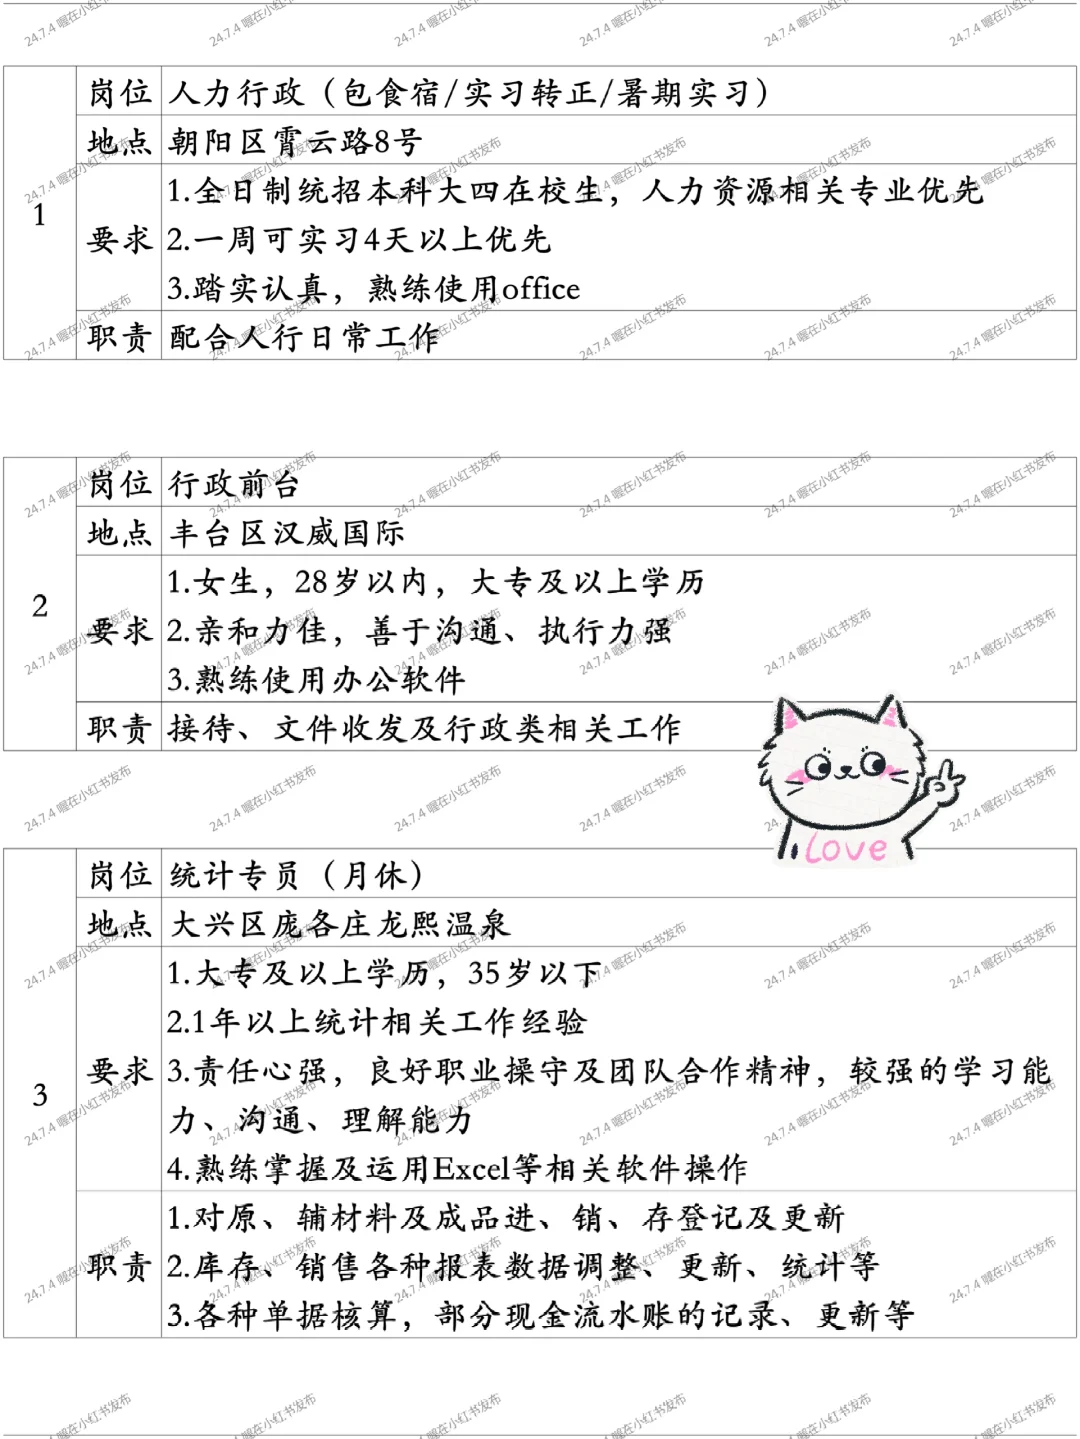 岗位 人力行政（包食宿/实习转正/暑期实习）
地点 朝阳区霄云路8号
1
要求
1.全日制统招本科大四在校生，人力资源相关专业优先
2.一周可实习4天以上优先
3.踏实认真，熟练使用office
职责 配合人行日常工作
岗位 行政前台
地点 丰台区汉威国际
2
要求
1.女生，28岁以内，大专及以上学历
2.亲和力佳，善于沟通、执行力强
3.熟练使用办公软件
职责 接待、文件收发及行政类相关工作
Love
岗位 统计专员（月休）
地点 大兴区庞各庄龙熙温泉
3
要求
1.大专及以上学历，35岁以下
2.1年以上统计相关工作经验
3.责任心强，良好职业操守及团队合作精神，较强的学习能
力、沟通、理解能力
4.熟练掌握及运用Excel等相关软件操作
职责
1.对原、辅材料及成品进、销、存登记及更新
2.库存、销售各种报表数据调整、更新、统计等
3.各种单据核算，部分现金流水账的记录、更新等
24.7.4 喔在小红书发布